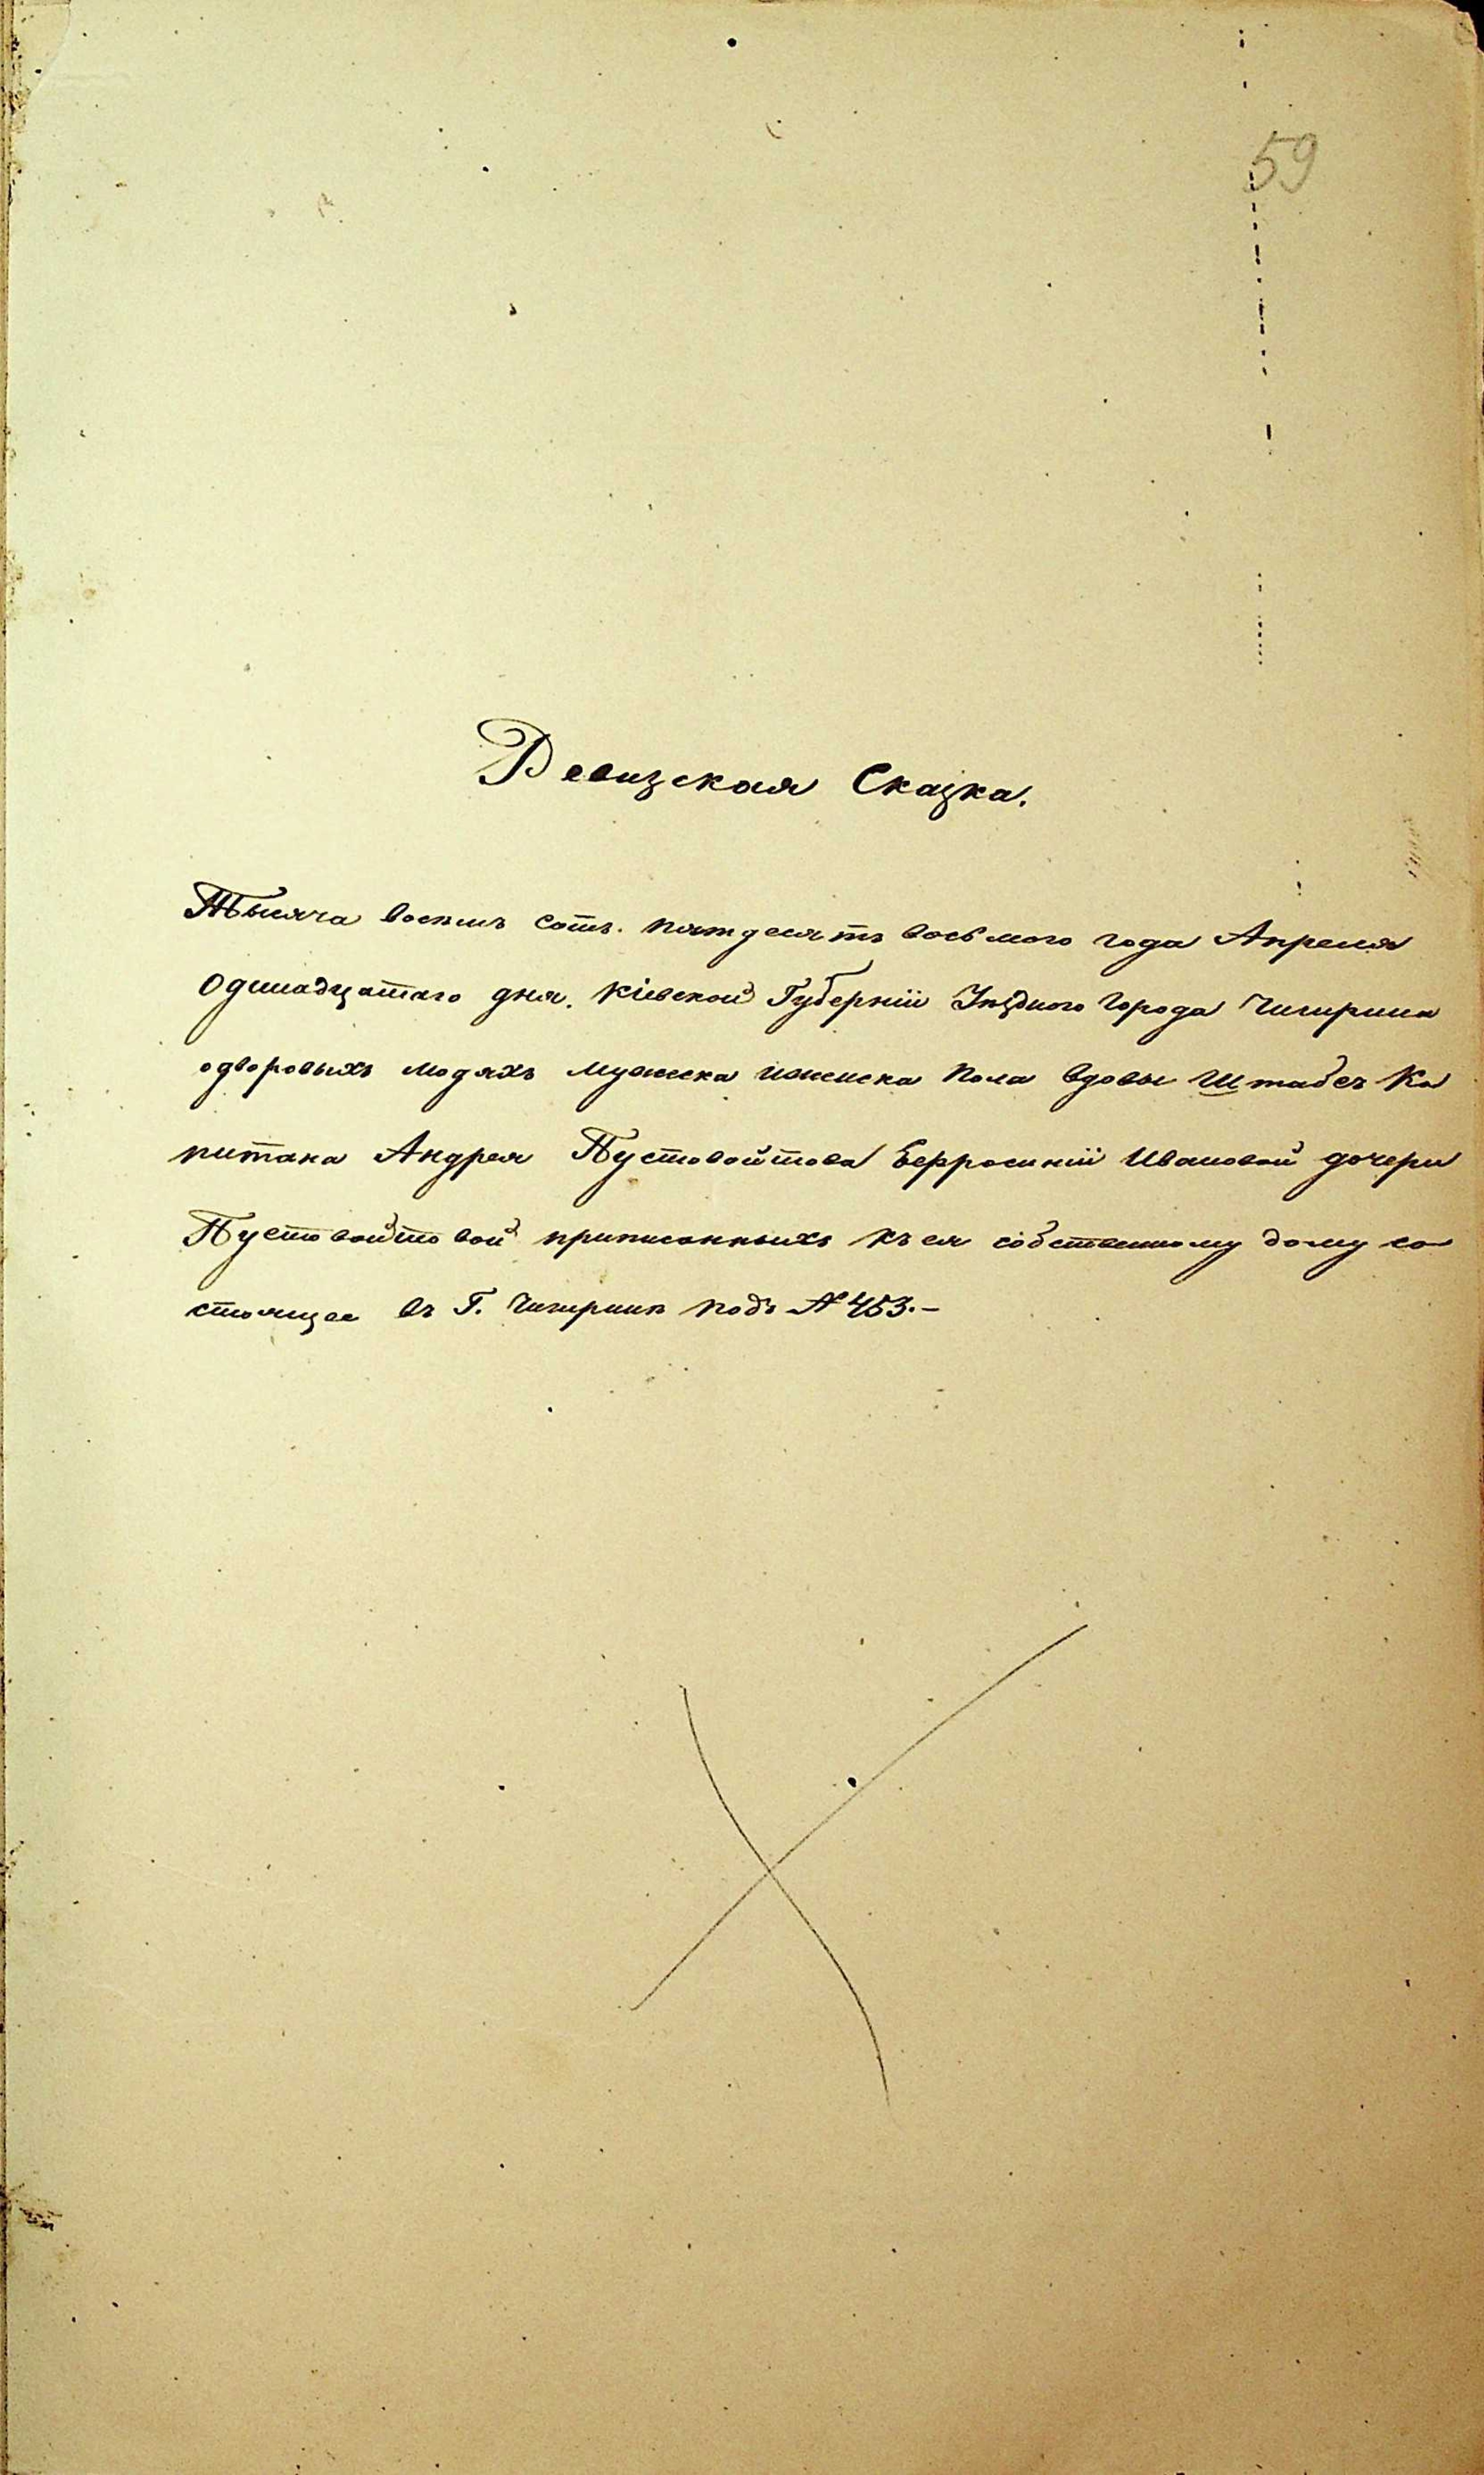 59
Ревизская Сказка.
Тысяча восемь сотъ. пятдесятъ восьмого года Апреля
Одинадцатаго дня. Кіевской Губерніи Уѣзднаго Города Чигирина
одворовыхъ людяхъ мужеска иженска Пола вдовы Штабсъ Ка
питана Андрея Пустовойтова Ефросиніи Ивановой дочери
Пустовойтовой приписанныхъ къ ея собственному дому со
стоящее въ Г. Чигиринѣ подъ № 453.-